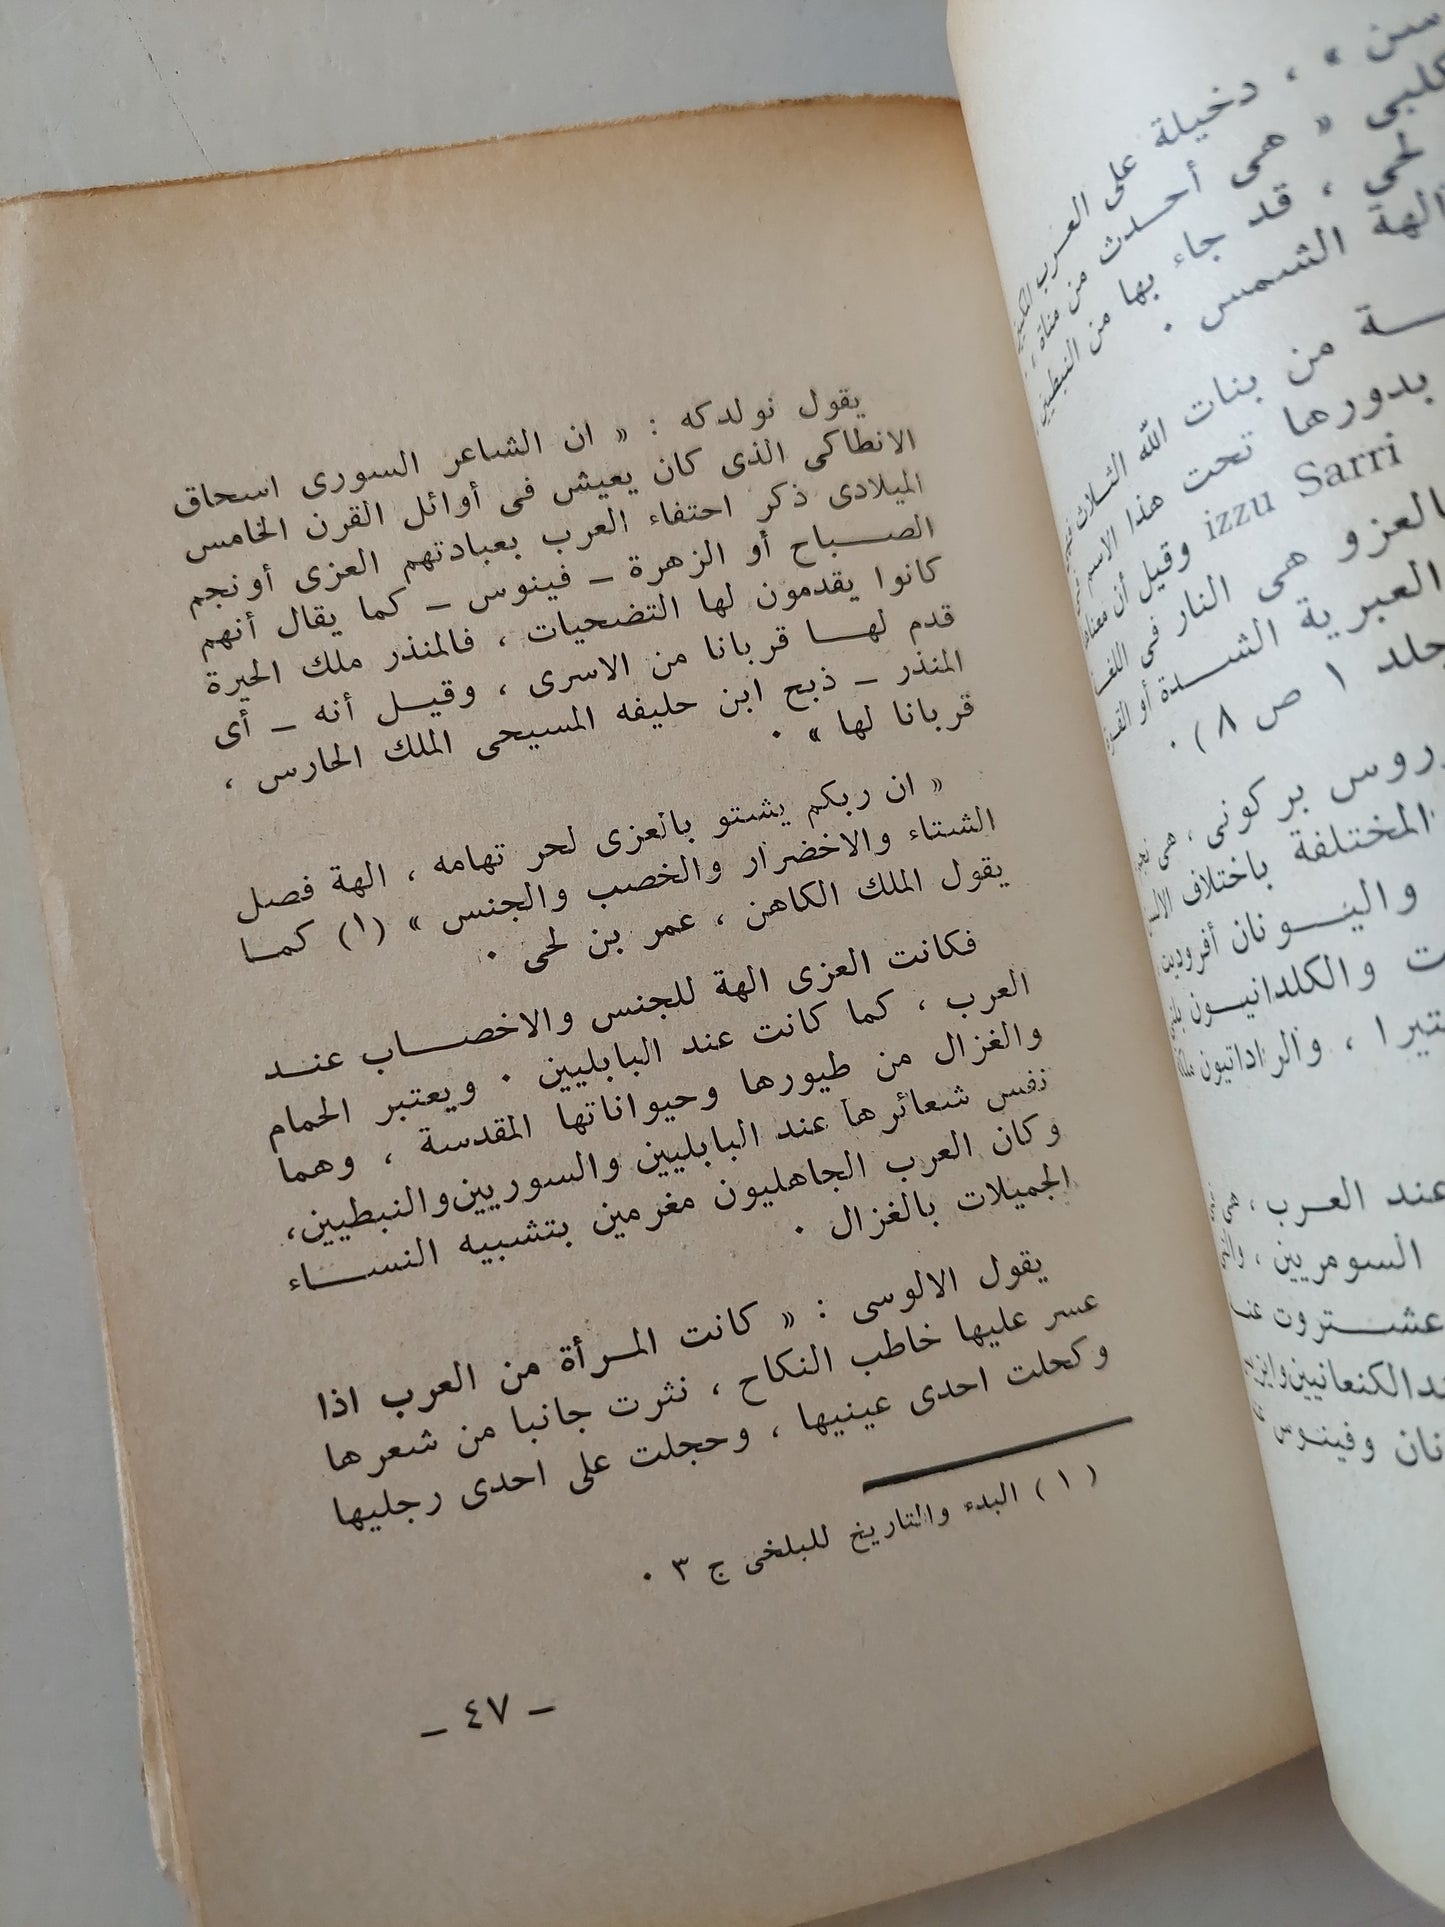 يقول نولدكه : « ان الشاعر السورى اسحاق
الانطاكى الذى كان يعيش فى أوائل القرن الخامس
الميلادى ذكر احتفاء العرب بعبادتهم العزى أونجم
الصباح أو الزهرة – فينوس – كما يقال أنهم
كانوا يقدمون لها التضحيات ، فالمنذر ملك الحيرة
قدم لها قربانا من الاسرى ، وقيل أنه – أى
المنذر – ذبح ابن حليفه المسيحى الملك الحارس ،
قربانا لها » .
« ان ربكم يشتو بالعزى لحر تهامه ، الهة فصل
الشتاء والاخضرار والخصب والجنس » (١) كما
يقول الملك الكاهن ، عمر بن لحى .
فكانت العزى الهة للجنس والاخصاب عند
العرب ، كما كانت عند البابليين . ويعتبر الحمام
والغزال من طيورها وحيواناتها المقدسة ، وهما
نفس شعائرها عند البابليين والسوريين والنبطيين،
وكان العرب الجاهليون مغرمين بتشبيه النساء
الجميلات بالغزال .
يقول الالوسى : « كانت المرأة من العرب اذا
عسر عليها خاطب النكاح ، نثرت جانبا من شعرها
وكحلت احدى عينيها ، وحجلت على احدى رجليها
( ١ ) البدء والتاريخ للبلخى ج ٣ .
– ٤٧ –
دخيلة على العرب
« هى أحدث من مناة ،
لحي ، قد جاء بها من النبطيين
الهة الشمس .
من بنات الله الثلاث
بدورها تحت هذا الاسم
izzu Sarri وقيل أن معناه
بالعزو هى النار فى اللغة
العبرية الشدة أو
١ ص ٨ ) .
بركونى ، هى
المختلفة باختلاف
واليونان أفروديت
والكلدانيون
، والراداتيون
عند العرب ، هى
السومريين ،
عشتروت
الكنعانيين
وفينوس